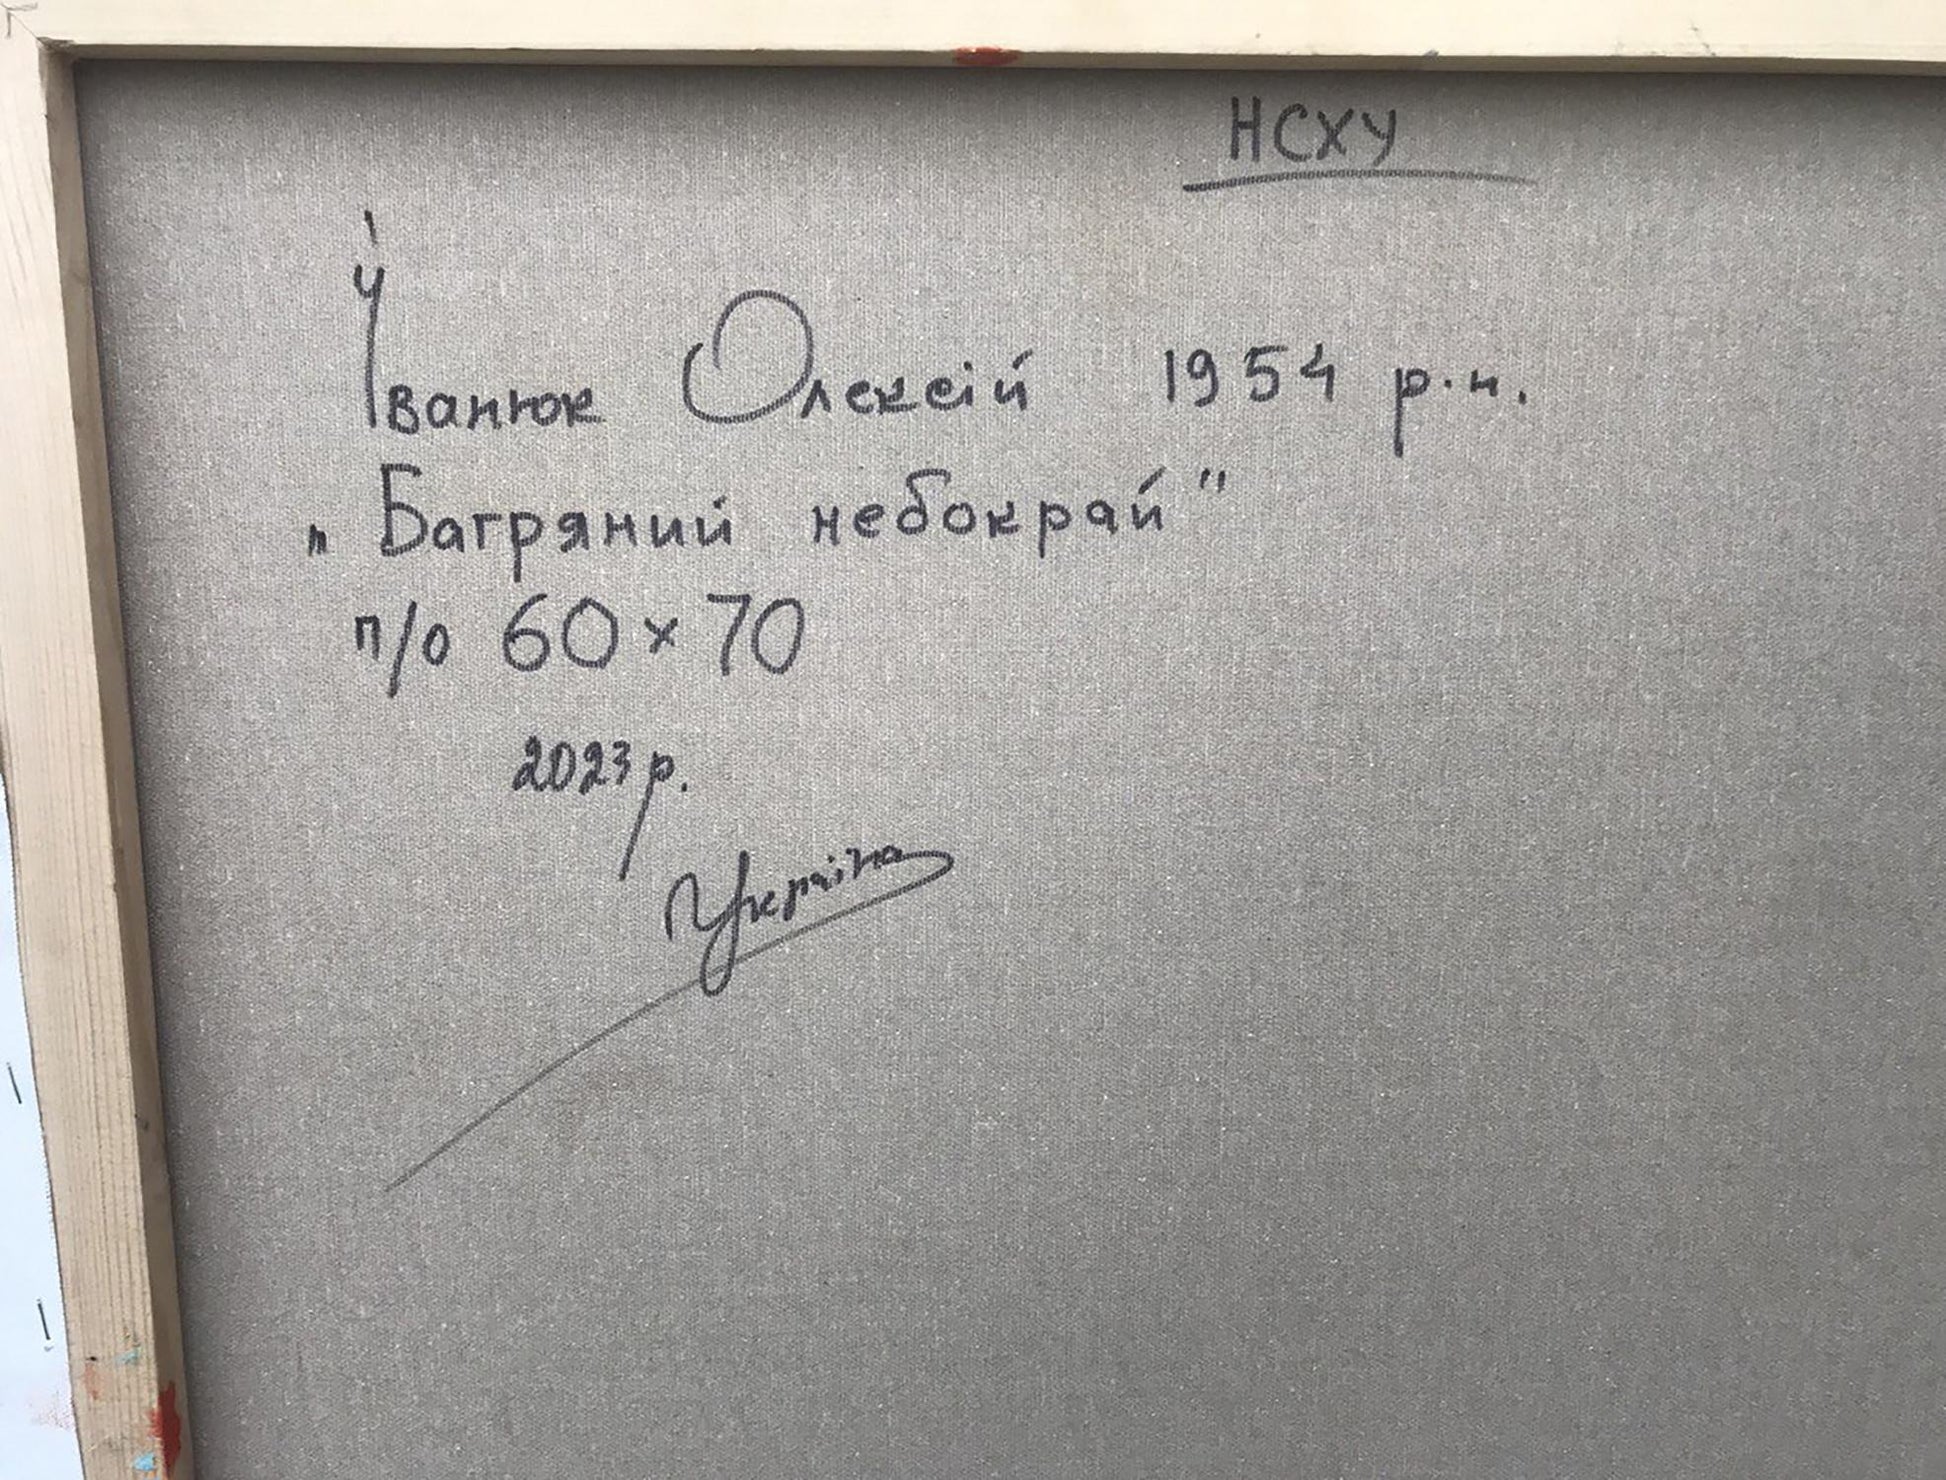 НСХУ
Іванюк Олексій 1954 р.н.
„Багряний небокрай"
п/о 60×70
2023р.
Україна